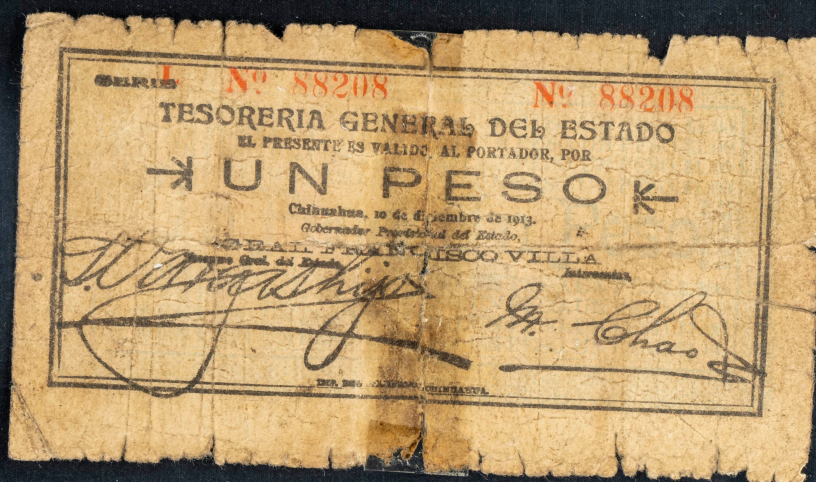 SERIE L Nº 88208 Nº 88208
TESORERIA GENERAL DEL ESTADO
EL PRESENTE ES VALIDO, AL PORTADOR, POR
UN PESO
Chihuahua, 10 de diciembre de 1913.
Gobernador Provisional del Estado,
GRAL FRANCISCO VILLA
Tesorero Gral. del Estado, Interventor,
S. Vargas hijo M. Chao
IMP. DEL CHIHUAHUA.